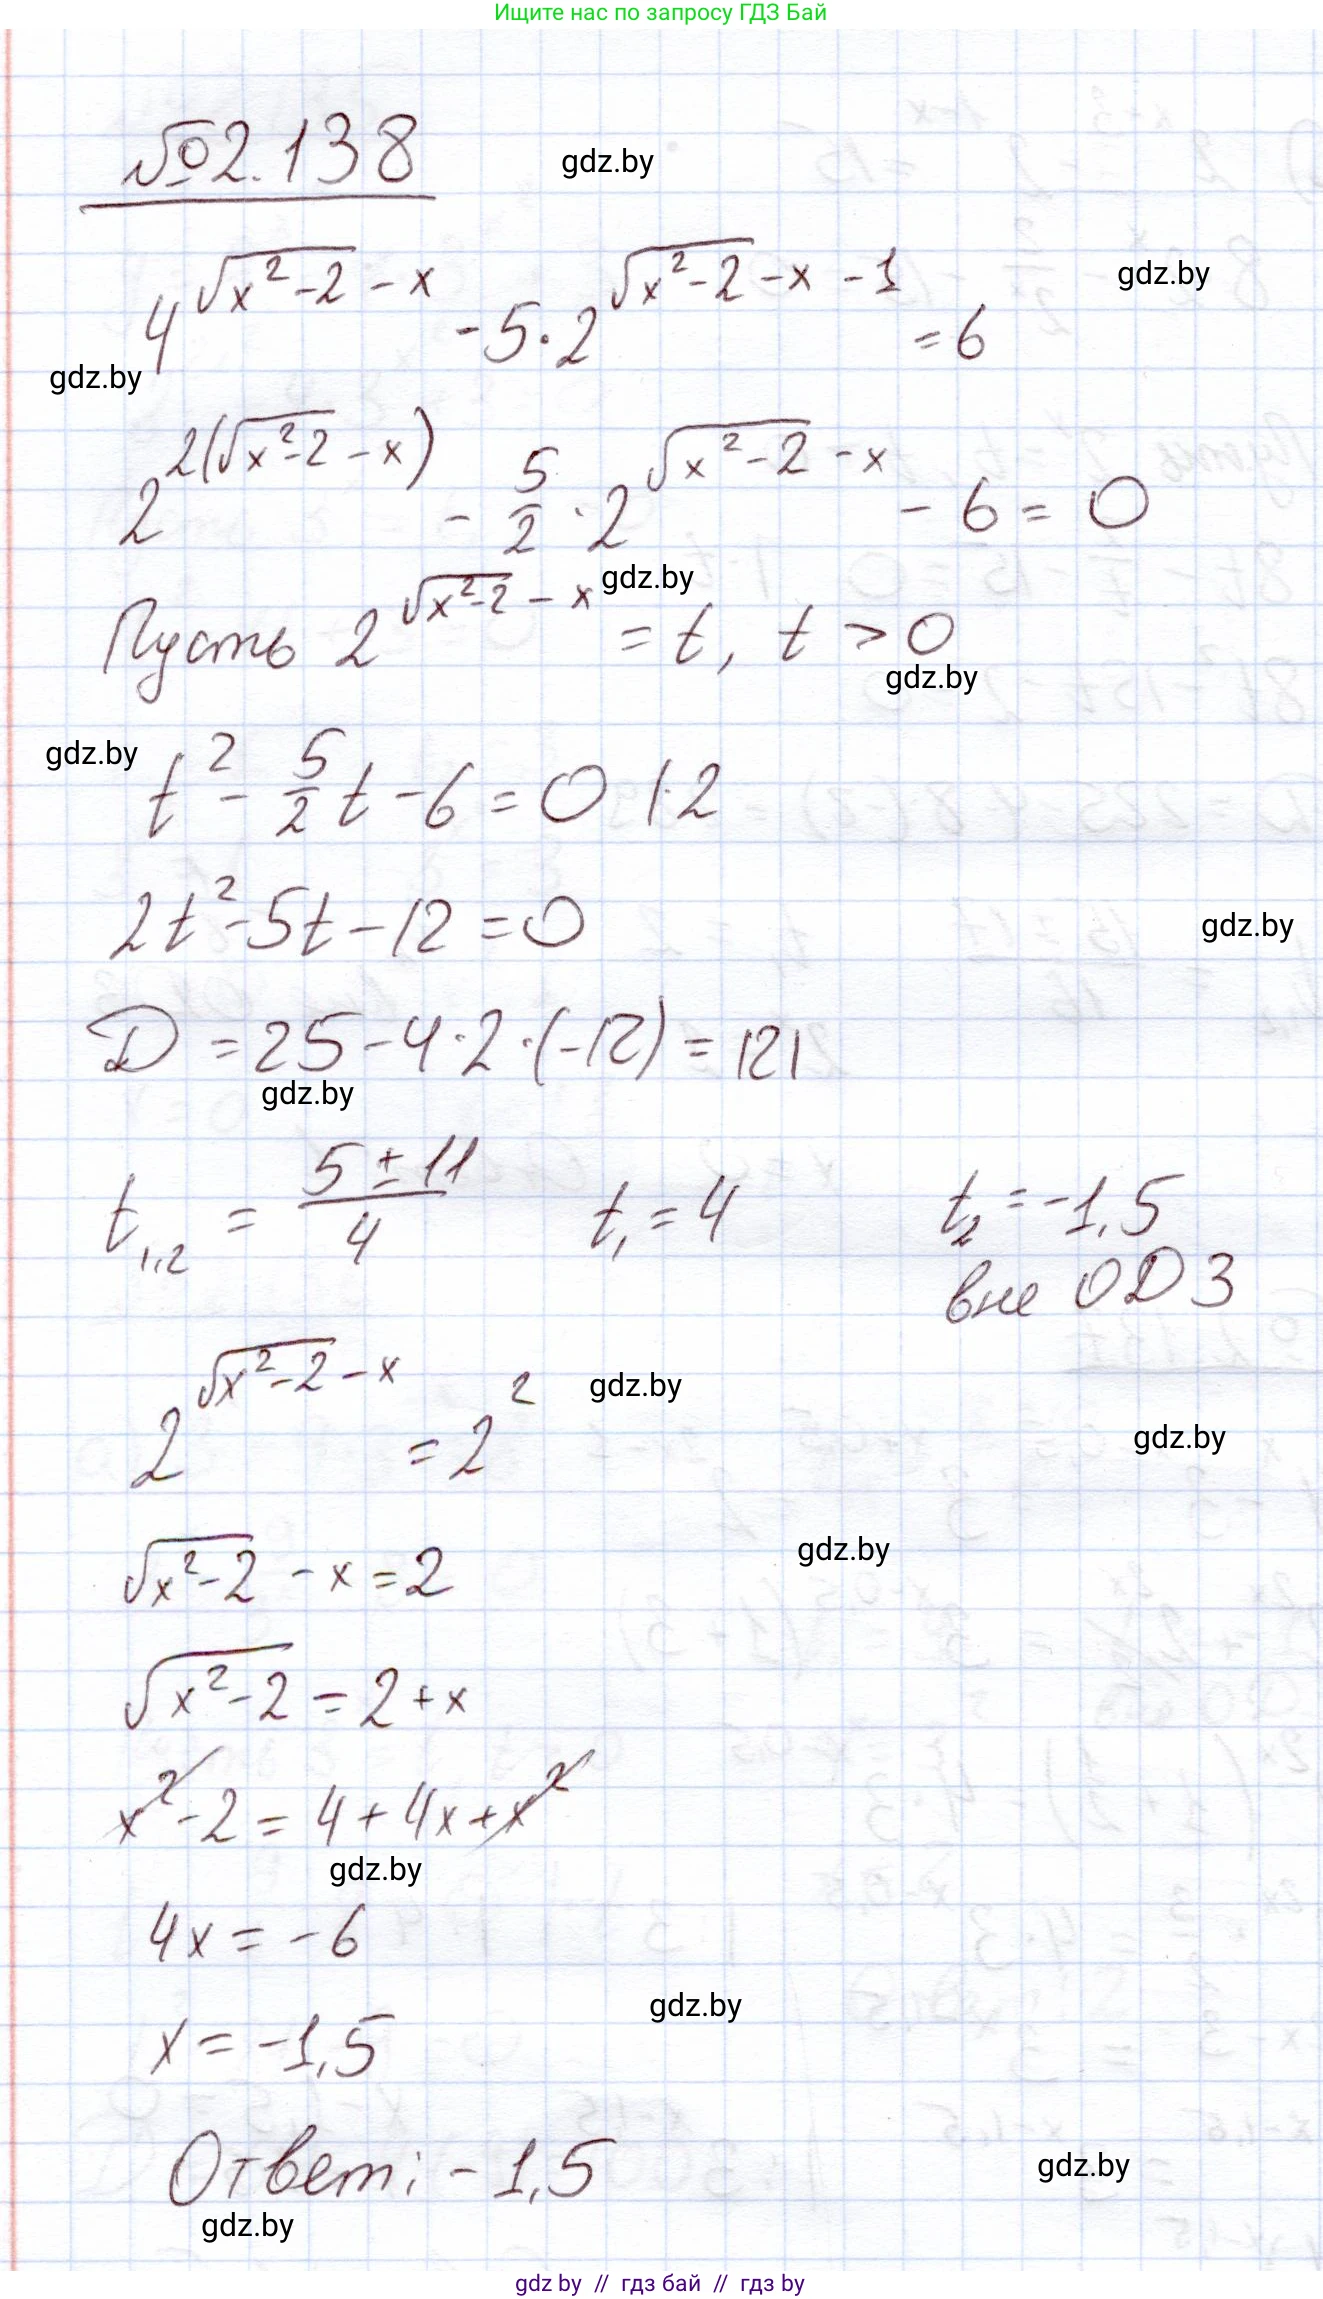 Ищите нас по запросу ГДЗ Бай
№2.138
gdz.by
4^(√(x²-2) - x) - 5·2^(√(x²-2) - x - 1) = 6
gdz.by
gdz.by
2^(2(√(x²-2) - x)) - 5/2 · 2^(√(x²-2) - x) - 6 = 0
gdz.by
Пусть 2^(√(x²-2) - x) = t, t > 0
gdz.by
gdz.by
t² - 5/2 t - 6 = 0 |·2
2t² - 5t - 12 = 0
gdz.by
D = 25 - 4·2·(-12) = 121
gdz.by
t₁,₂ = (5 ± 11)/4 t₁ = 4 t₂ = -1,5
вне ОДЗ
2^(√(x²-2) - x) = 2²
gdz.by
gdz.by
√(x²-2) - x = 2
gdz.by
√(x²-2) = 2 + x
x² - 2 = 4 + 4x + x²
gdz.by
4x = -6
gdz.by
x = -1,5
Ответ: -1,5
gdz.by
gdz.by
gdz by // гдз бай // гдз by